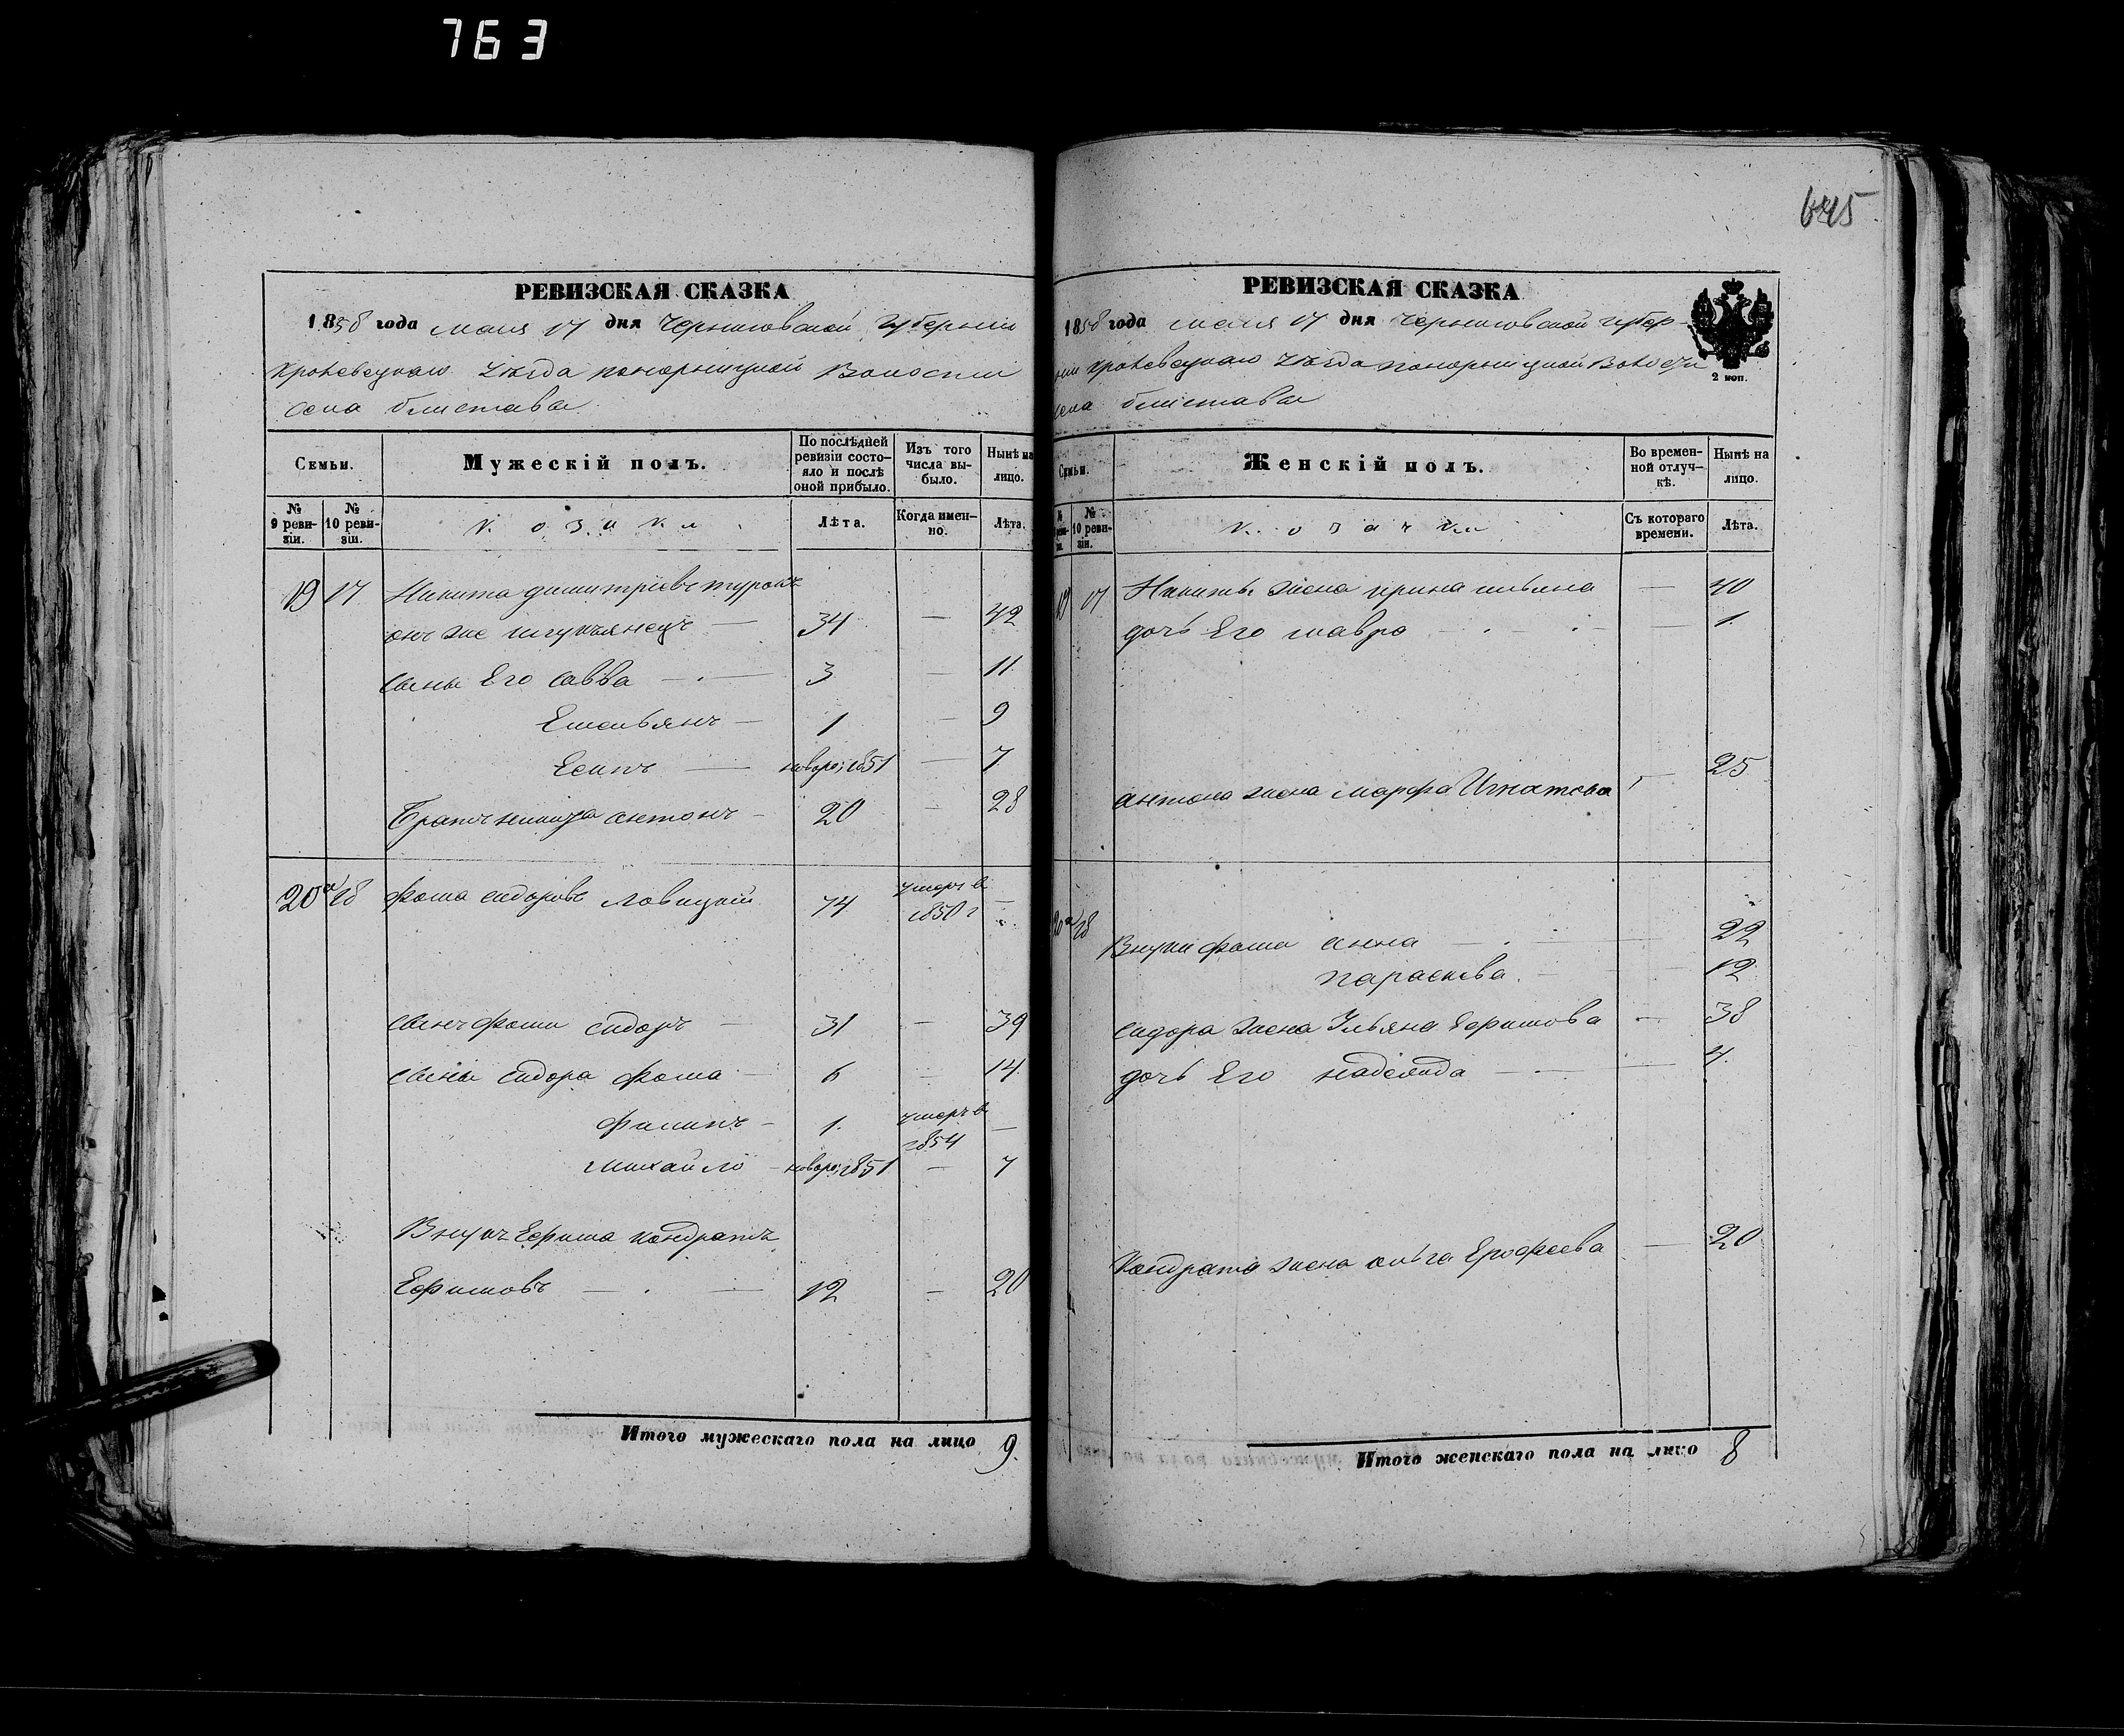 763
645
РЕВИЗСКАЯ СКАЗКА
1858 года мая 17 дня Черниговской Губерніи
Кролевецкаго Уѣзда понорницкой Волости
села блистова
Семьи.
Мужескій полъ.
По послѣдней ревизіи состояло и послѣ оной прибыло.
Изъ того числа выбыло.
Нынѣ на лицо.
№ 9 ревизіи.
№ 10 ревизіи.
козаки
Лѣта.
Когда именно.
Лѣта.
19 17 Никита димитріевъ
онъ же 34 — 42
сыны Его савва — 3 — 11
Емельянъ — 1 — 9
Есипъ — новорож; 1851 — 7
Братъ никиты антонъ — 20 — 28
20а 18 Фома сидоровъ Ловицкій 74 умеръ в 1850 г —
сынъ фомы сидоръ — 31 — 39
сыны сидора фома — 6 — 14
филипъ — 1. умеръ в 1854 —
михайло — новорож; 1851 — 7
Внукъ Ефима кондратъ
Ефимовъ — 12 — 20
Итого мужескаго пола на лицо 9.
РЕВИЗСКАЯ СКАЗКА
1858 года мая 17 дня Черниговской губер-
ніи кролевецкаго Уѣзда понорницкой Волости
села блистова
2 коп.
Семьи.
Женскій полъ.
Во временной отлучкѣ.
Нынѣ на лицо.
№ 10 ревизіи.
козачки
Съ котораго времени.
Лѣта.
19 17 Никиты жена ирина — 40
дочь Его мавра — 1
антона жена марфа Игнатова — 25
20а 18
Внуки фомы анна — 22
параскева — 12
сидора жена Ульяна Ефимова — 38
дочь Его надежда — 4
Кондрата жена ольга Ерофеева — 20
Итого женскаго пола на лицо 8